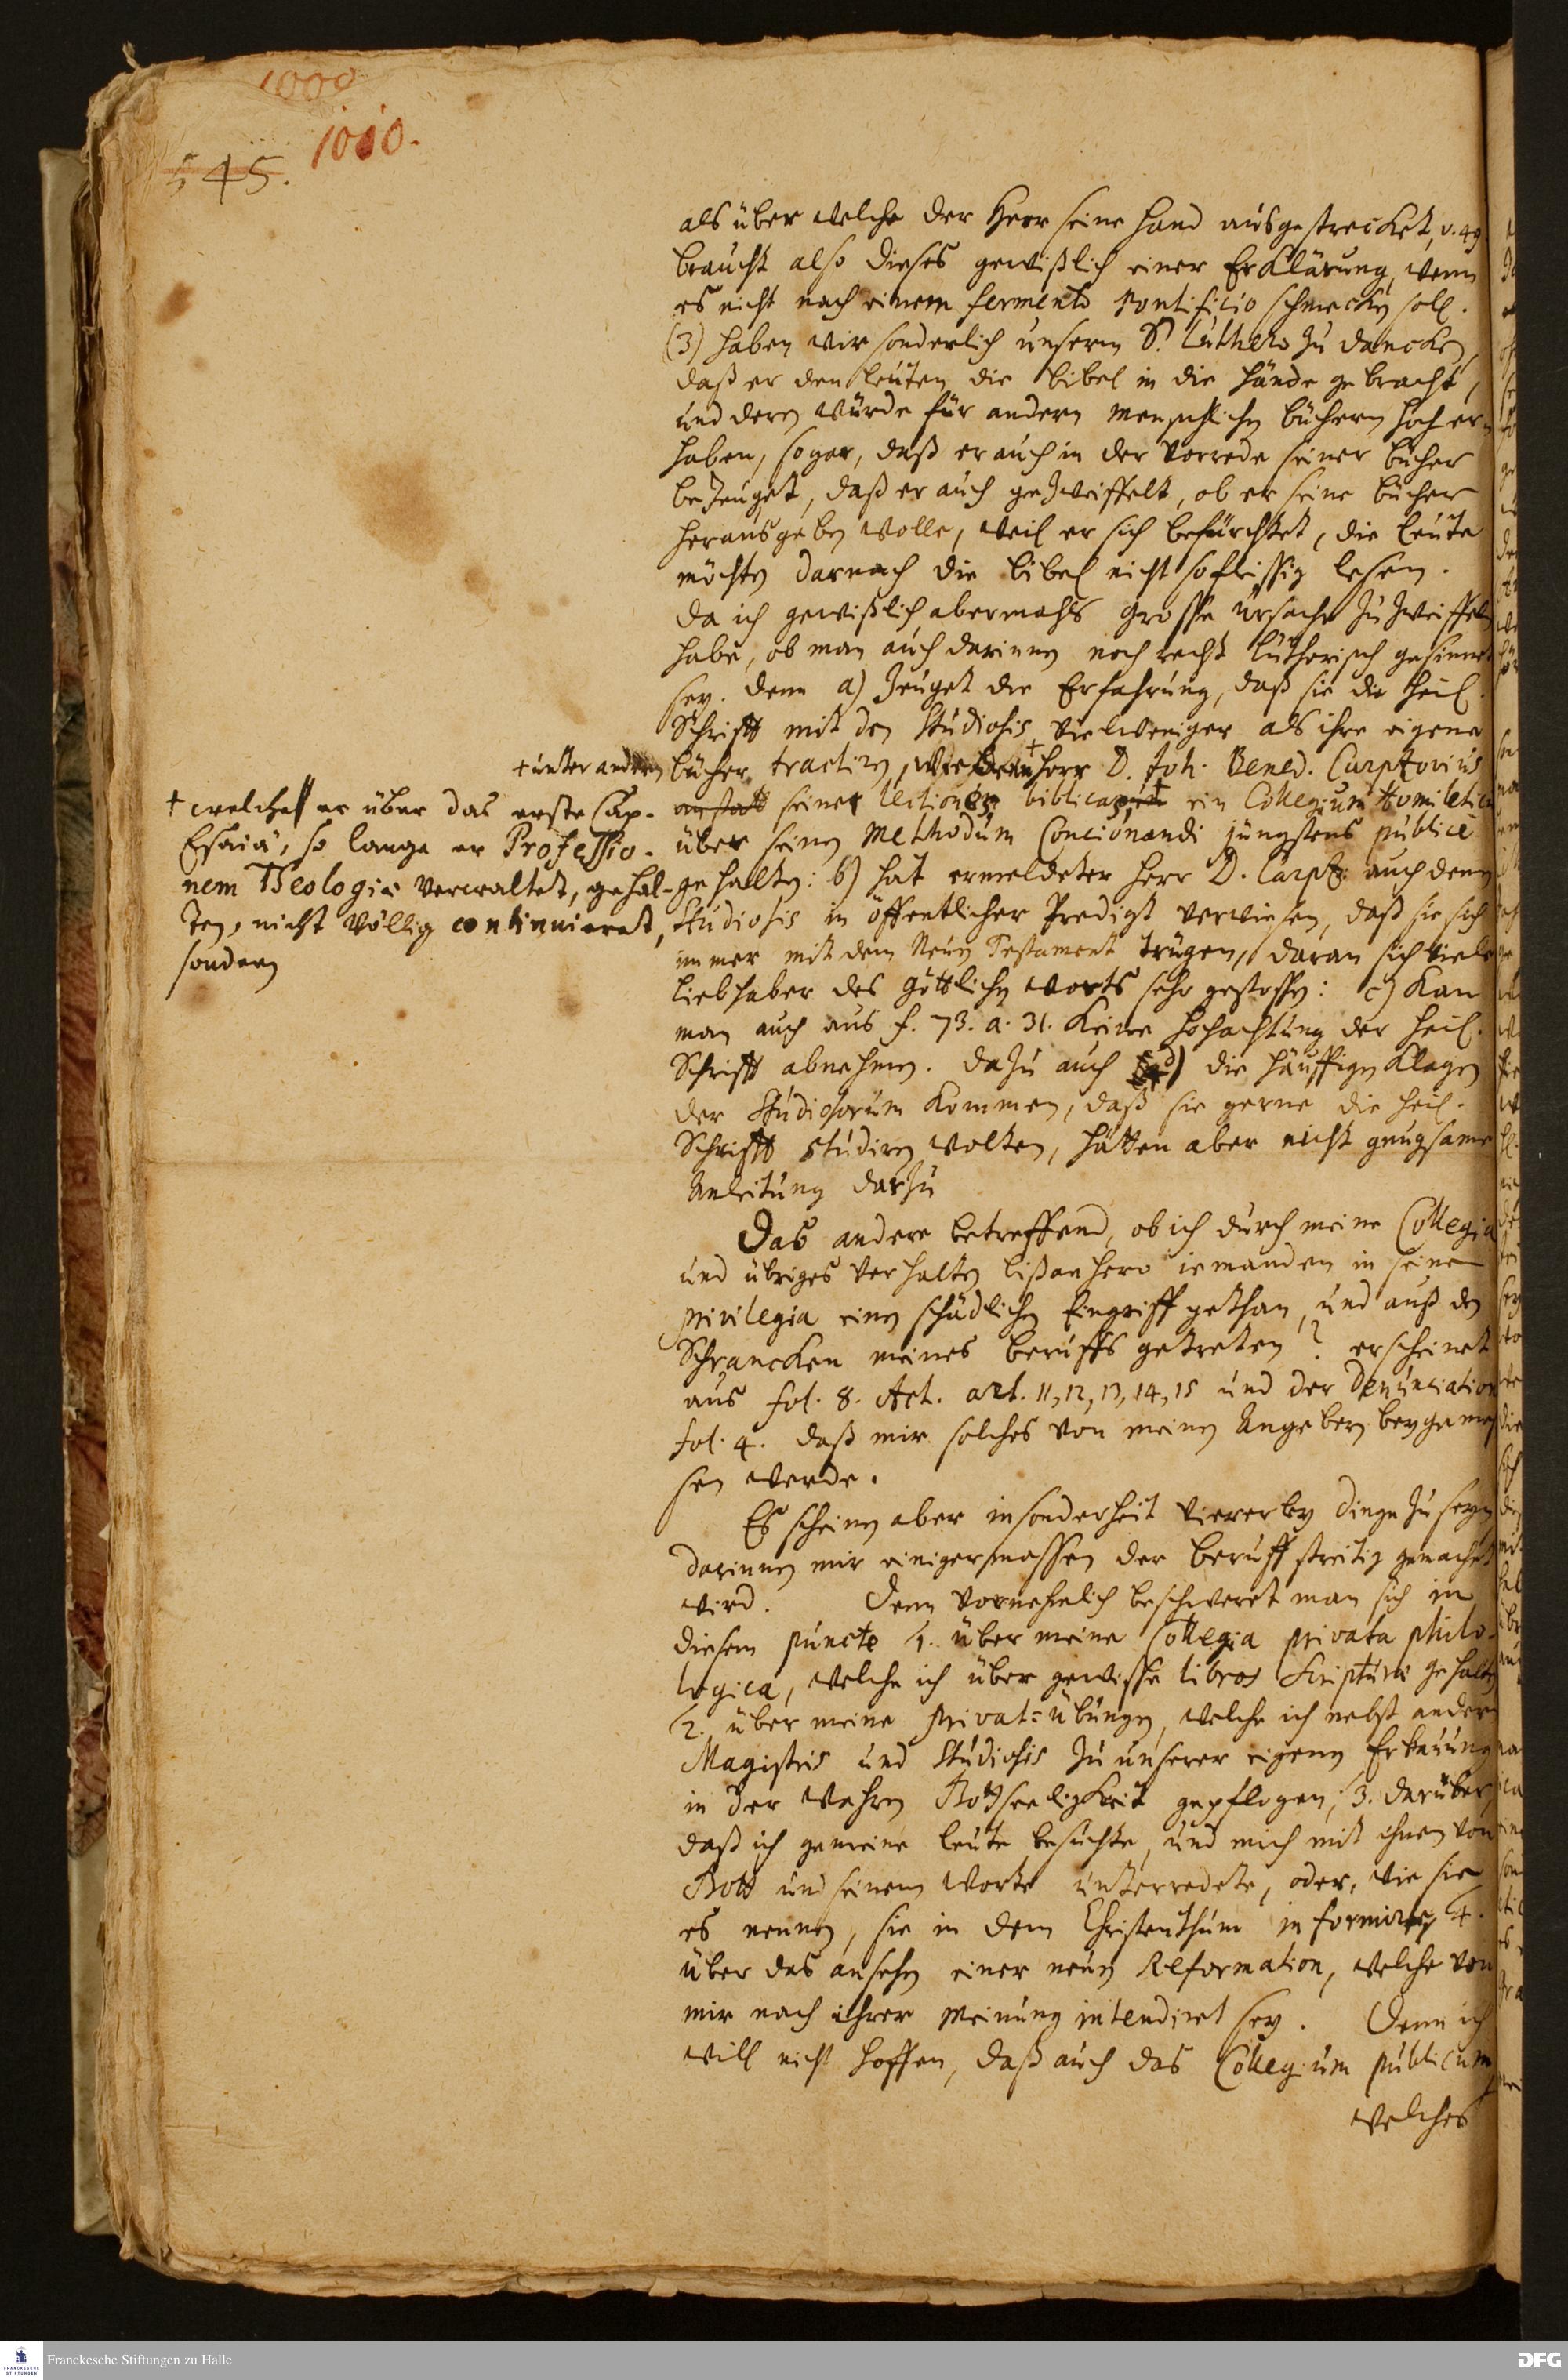 1000
1010.
545.
als über welche der Herr seine Hand ausgestrecket, v. 49.
braucht also dieses gewißlich einer Erklärung, wenn
es nicht nach einem fermento Pontificio schmecken soll.
(3) haben wir sonderlich unserm S. Luthero zu dancken,
daß er den Leuten die Bibel in die Hände gebracht,
und deren Würde für andern menschlichen Büchern hoch er-
haben, sogar, daß er auch in der Vorrede seiner Bücher
bezeuget, daß er auch gezweiffelt, ob er seine Bücher
herausgeben wolle, weil er sich befürchtet, die Leute
möchten darnach die Bibel nicht so fleissig lesen.
Da ich gewißlich abermahls grosse Ursache zu zweiffeln
habe, ob man auch darinnen noch recht Lutherisch gesinnet
sey. Denn a) zeuget die Erfahrung, daß sie die Heil.
Schrifft mit den Studiosis vielweniger als ihre eigene
+ unter andern
Bücher tractiren, wie denn + Herr D. Joh. Bened. Carpzovius
anstatt seiner Lectionen biblicam ein Collegium Homileticum
über seinen Methodum Concionandi jüngstens publicè
gehalten: b) hat ermeldeter Herr D. Carpz. auch denen
Studiosis in öffentlicher Predigt verwiesen, daß sie sich
immer mit dem Neuen Testament trügen, daran sich viele
Liebhaber des Göttlichen Worts sehr gestossen: c) Kan
man auch aus f. 73. a. 31. keine Hochachtung der Heil.
Schrifft abnehmen. Dazu auch d) die häuffigen Klagen
der Studiosorum kommen, daß sie gerne die Heil.
Schrifft studiren wolten, hätten aber nicht gnugsame
Anleitung darzu
† welche er über das erste Cap.
Esaiä, so lange er Professio-
nem Theologiæ verwaltet, gehal-
ten, nicht völlig continuieret,
sondern
Das andere betreffend, ob ich durch meine Collegia
und übriges Verhalten bißanhero iemanden in seine
privilegia einen schädlichen Eingriff gethan, und auß den
Schrancken meines Beruffs getreten? erscheinet
aus fol. 8. Act. art. 11, 12, 13, 14, 15 und der Denunciation
fol. 4. daß mir solches von meinen Angebern beygemes-
sen werde.
Es scheinen aber insonderheit viererley Dinge zu seyn
darinnen mir einigermassen der Beruff streitig gemachet
wird. Denn vornehmlich beschweret man sich in
diesem puncte 1. über meine Collegia privata philo-
logica, welche ich über gewisse libros Scripturæ gehalten
2. über meine Privat-Übungen, welche ich nebst andern
Magistris und Studiosis zu unserer eigenen Erbauung
in der wahren Gottseeligkeit gepflogen; 3. darüber,
daß ich gemeine Leute besuchte, und mich mit ihnen von
Gott und seinem Worte unterredete, oder, wie sie
es nennen, sie in dem Christenthum informire, 4.
über das ansehen einer neuen Reformation, welche von
mir nach ihrer Meinung intendiret sey. Denn ich
will nicht hoffen, daß auch das Collegium publicum
welches
Franckesche Stiftungen zu Halle
DFG